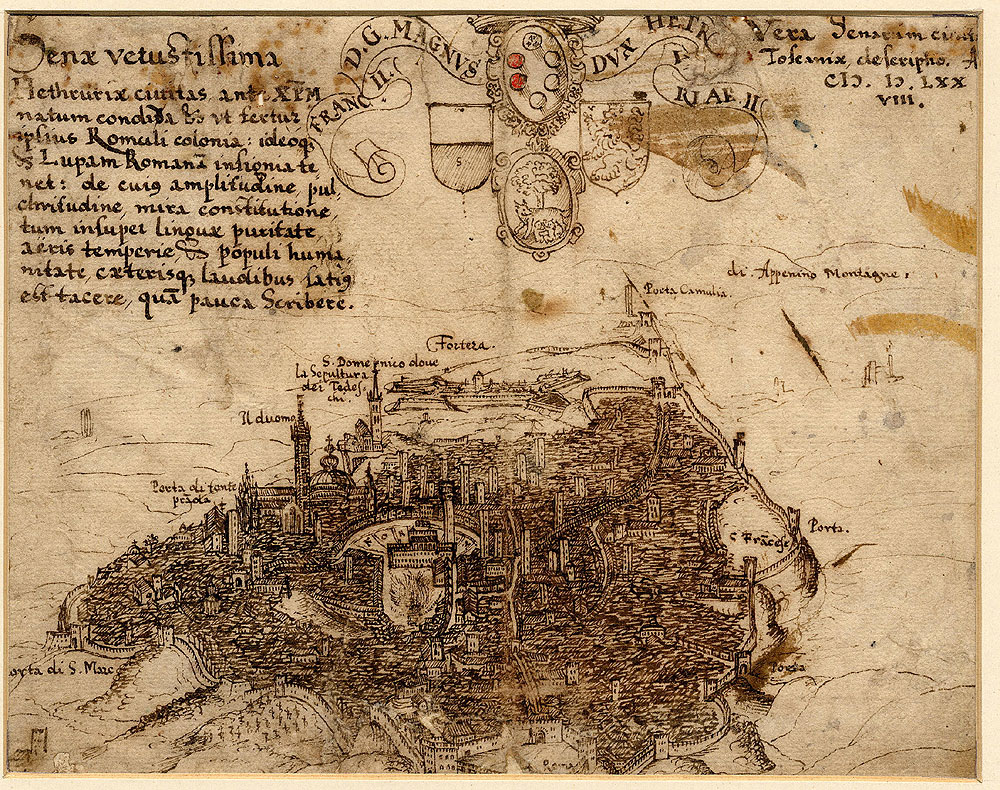 Senæ vetustissima
Hethruriæ civitas ante XPM
natum condita & ut fertur
ipsius Romuli colonia: ideoq;
& Lupam Romanā insignia te
net: de cuius amplitudine, pul,
chritudine, mira constitutione,
tum insuper linguæ puritate
aeris temperie, & populi huma,
nitate, cæterisq; laudibus satiꝰ
est tacere, quā pauca Scribere.
FRANC. II. D. G. MAGNVS DVX HETR
RIAE. II
S
Vera Senarum
Toscaniæ descriptio. A
CIↃ. IↃ. LXX
VIII.
di Appenino Montagne.
Porta Camulia
Forteza.
S. Domenico doue
la Sepultura
dei Tedes,
chi.
Il duomo
Porta di fonte
brāda
C. Frācesc
Porta.
Porta di S. Marc
Porta
Roma